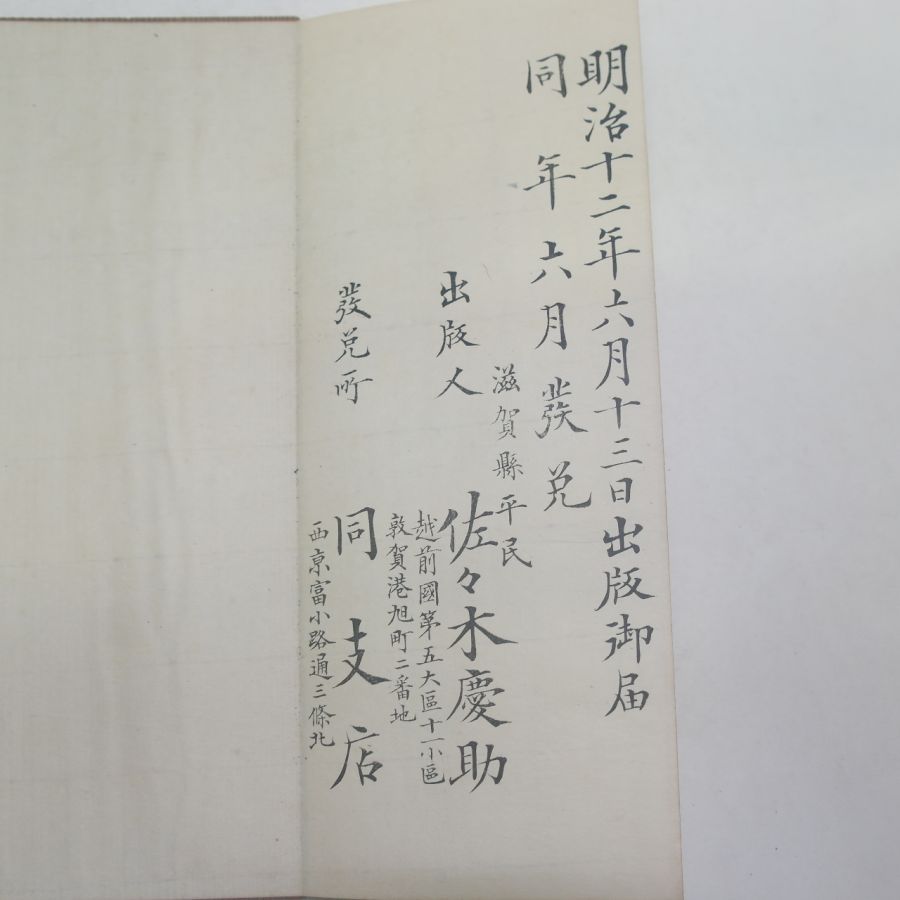 明治十二年六月十三日出版御届
同年六月發兌
滋賀縣平民
出版人 佐々木慶助
越前國第五大區十一小區
敦賀港旭町二番地
發兌所 同支店
西京富小路通三條北